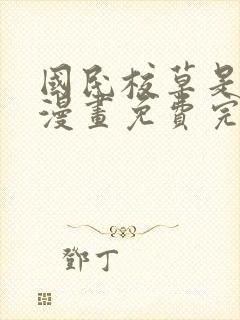 國民校草是
漫畫免費完
鄧丁